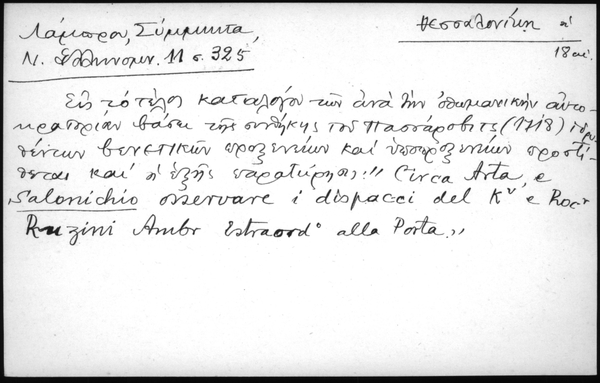 Λάμπρου, Σύμμικτα,
Θεσσαλονίκη
Ν. Ἑλληνομν. 11 σ. 325
18 αἰ.
Εἰς τὸ τέλος καταλόγου τῶν ἀνὰ τὴν ὀθωμανικὴν αὐτο-
κρατορίαν βάσει τῆς συνθήκης τοῦ Πασσάροβιτς (1718) ἱδρυ-
θέντων βενετικῶν προξενείων καὶ ὑποπροξενείων προστί-
θεται καὶ ἡ ἑξῆς παρατήρησις: "Circa Arta, e
Salonichio osservare i dispacci del K.r e Proc.r
Ruzini Ambr Estraord.o alla Porta."